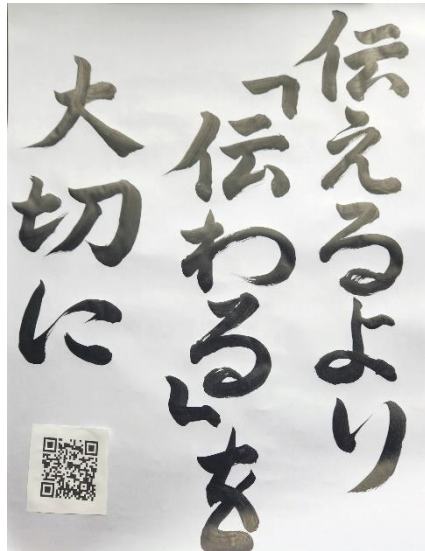 伝えるより
「伝わる」を
大切に